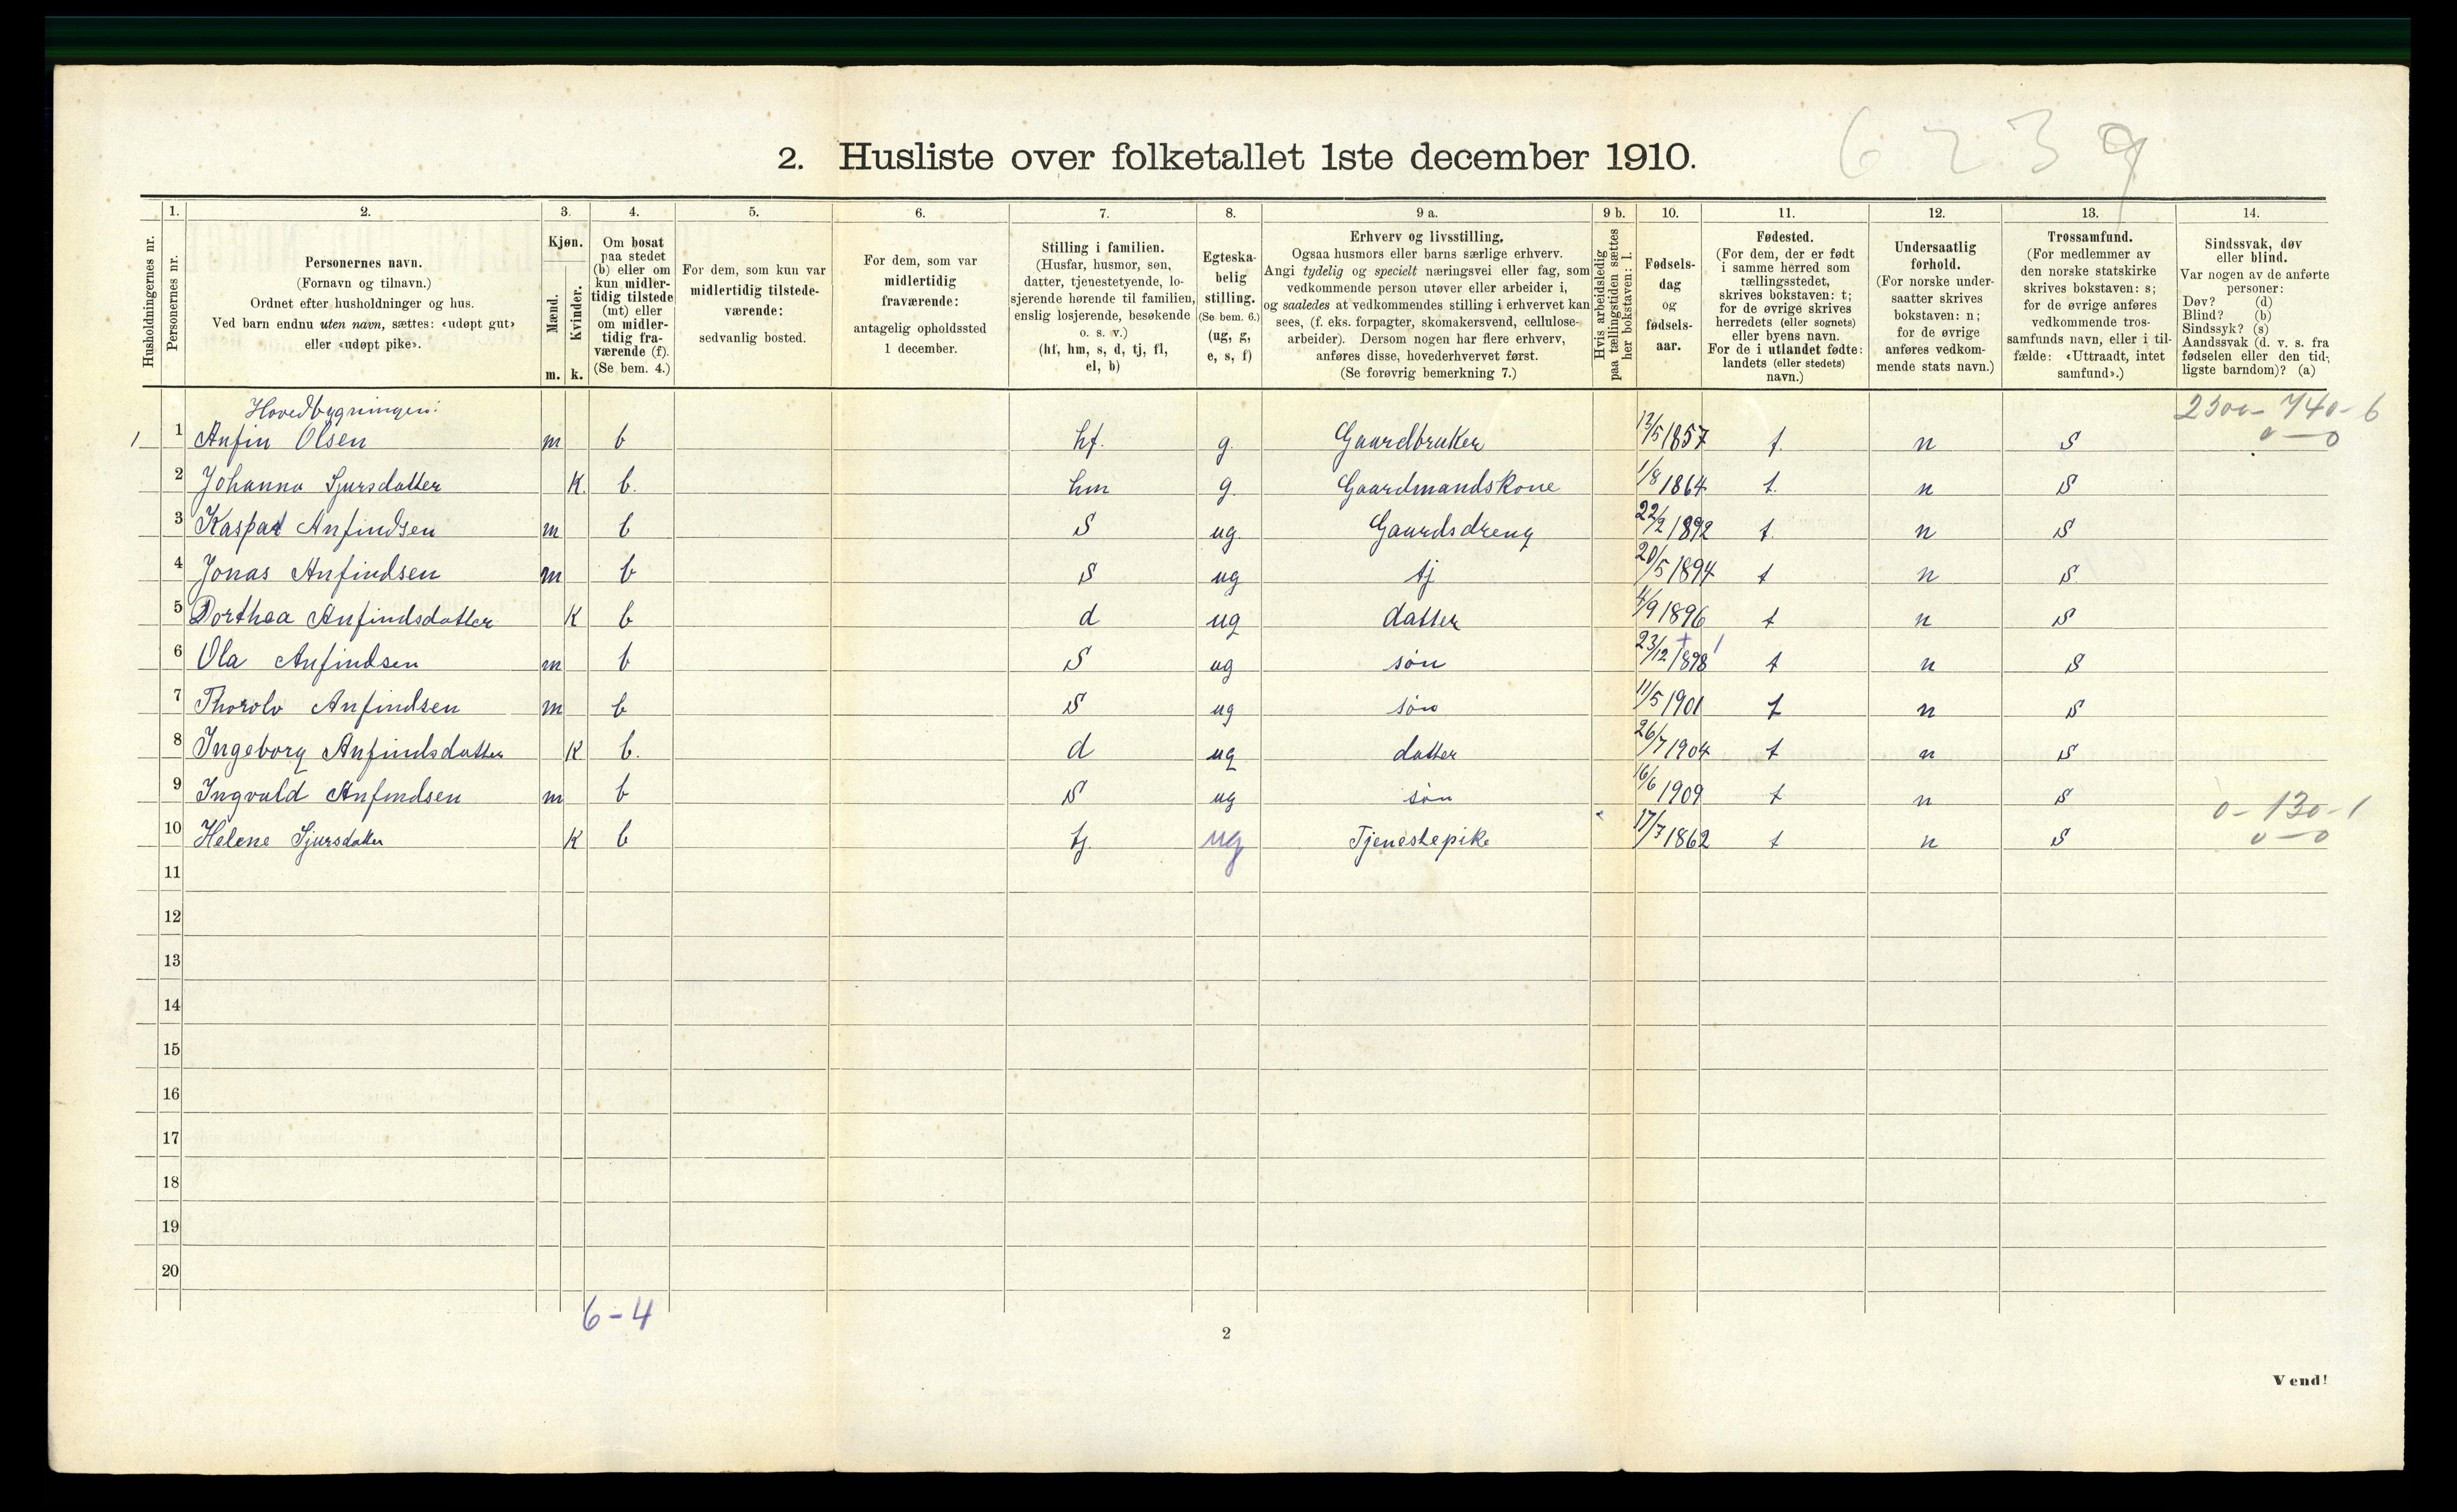 6 2 3 9
2. Husliste over folketallet 1ste december 1910.
Husholdningernes nr.
1. Personernes nr.
2. Personernes navn. (Fornavn og tilnavn.) Ordnet efter husholdninger og hus. Ved barn endnu uten navn, sættes: «udøpt gut» eller «udøpt pike».
3. Kjøn. Mænd. m. Kvinder. k.
4. Om bosat paa stedet (b) eller om kun midler-tidig tilstede (mt) eller om midler-tidig fra-værende (f). (Se bem. 4.)
5. For dem, som kun var midlertidig tilstede-værende: sedvanlig bosted.
6. For dem, som var midlertidig fraværende: antagelig opholdssted 1 december.
7. Stilling i familien. (Husfar, husmor, søn, datter, tjenestetyende, lo-sjerende hørende til familien, enslig losjerende, besøkende o. s. v.) (hf, hm, s, d, tj, fl, el, b)
8. Egteska-belig stilling. (Se bem. 6.) (ug, g, e, s, f)
9 a. Erhverv og livsstilling. Ogsaa husmors eller barns særlige erhverv. Angi tydelig og specielt næringsvei eller fag, som vedkommende person utøver eller arbeider i, og saaledes at vedkommendes stilling i erhvervet kan sees, (f. eks. forpagter, skomakersvend, cellulose-arbeider). Dersom nogen har flere erhverv, anføres disse, hovederhvervet først. (Se forøvrig bemerkning 7.)
9 b. Hvis arbeidsledig paa tællingstiden sættes her bokstaven: l.
10. Fødsels-dag og fødsels-aar.
11. Fødested. (For dem, der er født i samme herred som tællingsstedet, skrives bokstaven: t; for de øvrige skrives herredets (eller sognets) eller byens navn. For de i utlandet fødte: landets (eller stedets) navn.)
12. Undersaatlig forhold. (For norske under-saatter skrives bokstaven: n; for de øvrige anføres vedkom-mende stats navn.)
13. Trossamfund. (For medlemmer av den norske statskirke skrives bokstaven: s; for de øvrige anføres vedkommende tros-samfunds navn, eller i til-fælde: «Uttraadt, intet samfund».)
14. Sindssvak, døv eller blind. Var nogen av de anførte personer: Døv? (d) Blind? (b) Sindssyk? (s) Aandssvak (d. v. s. fra fødselen eller den tid-ligste barndom)? (a)
Hovedbygningen: 2300 - 740 - 6
1 1 Anfin Olsen m b hf. g. Gaardbruker 13/5 1857 t. n S 0 - 0
2 Johanna Sjursdatter K. b. hm g. Gaardmandskone 1/8 1864 t. n S
3 Kaspar Anfindsen m b S ug. Gaardsdreng 22/2 1892 t. n S
4 Jonas Anfindsen m b S ug tj 20/5 1894 t n S
5 Dorthea Anfindsdatter K b d ug datter 4/9 1896 t n S
6 Ola Anfindsen m b S ug søn 23/12 1898 t n S
7 Thorolv Anfindsen m b S ug søn 11/5 1901 t n S
8 Ingeborg Anfindsdatter K b. d ug datter 26/7 1904 t n S
9 Ingvald Anfindsen m b S ug søn 16/6 1909 t n S 0 - 130 - 1
10 Helene Sjursdatter K b tj. ug Tjenestepike 17/7 1862 t n S 0 - 0
11
12
13
14
15
16
17
18
19
20
6 - 4
2
Vend!